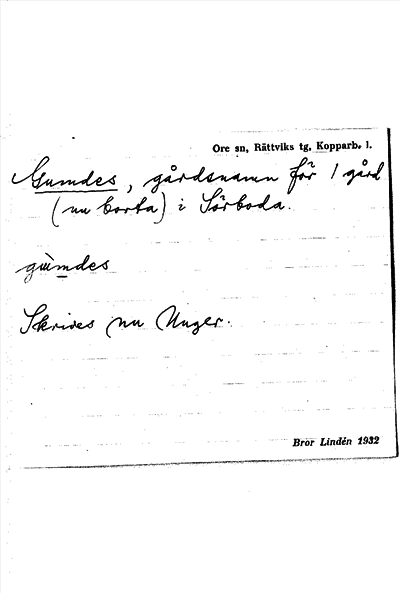 Ore sn, Rättviks tg, Kopparb. l.
Gumdes, gårdsnamn för 1 gård
(nu borta) i Sörboda.
gùmdes
Skrives nu Unger.
Bror Lindén 1932